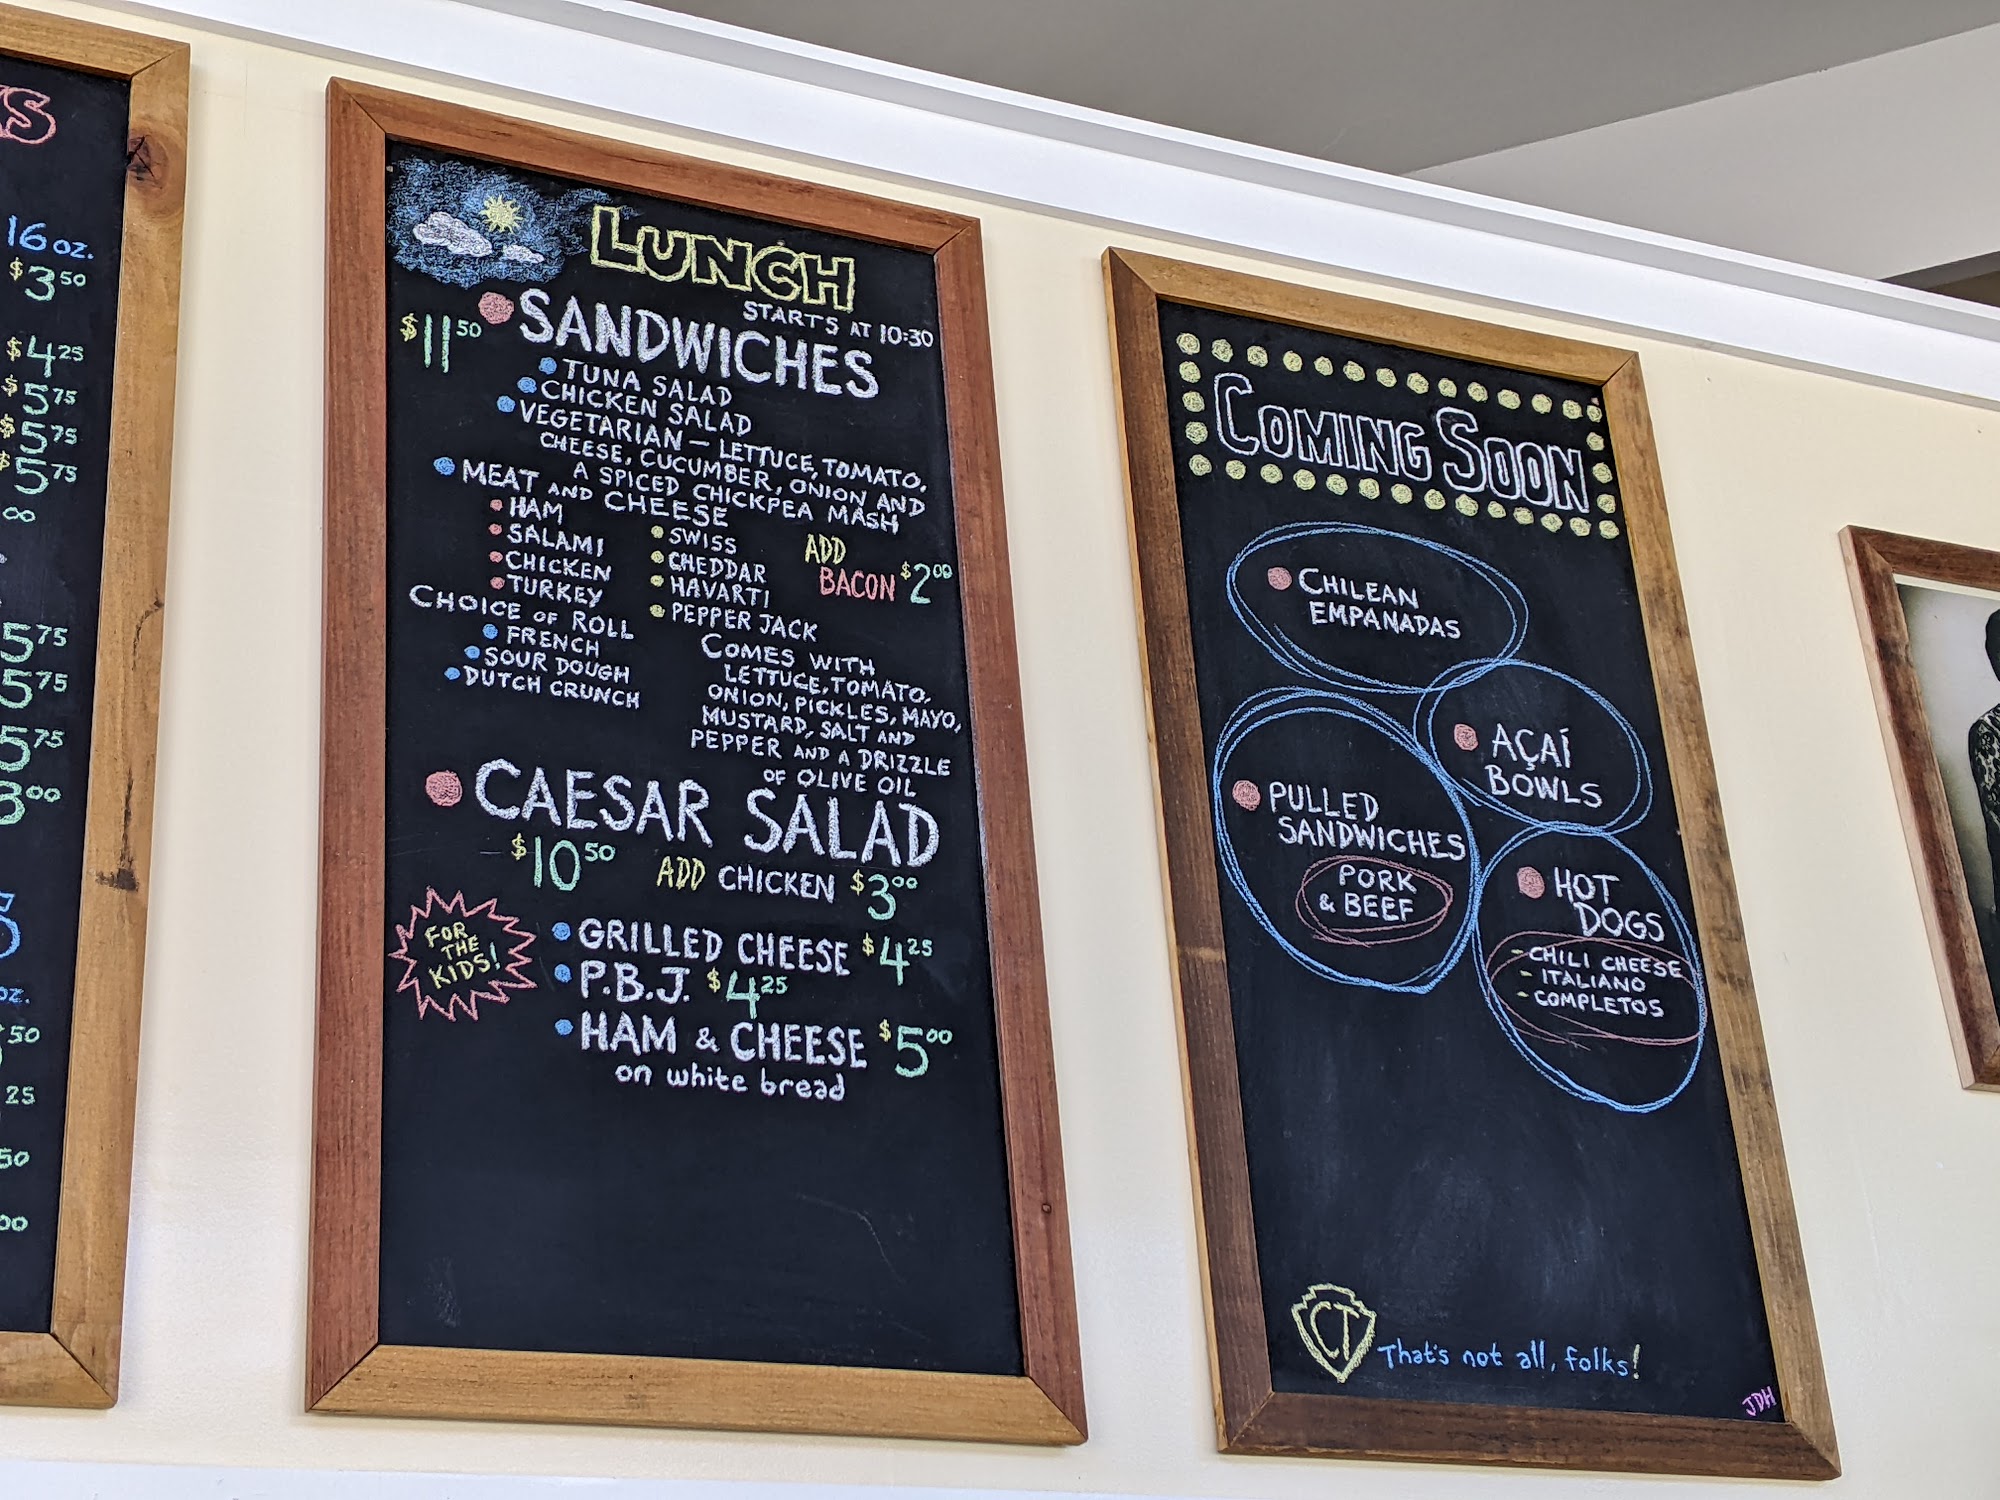 16 oz.
$3.50
$4.25
$5.75
$5.75
$5.75
5.75
5.75
5.75
3.00
oz.
50
25
50
00
LUNCH
STARTS AT 10:30
$11.50 SANDWICHES
TUNA SALAD
CHICKEN SALAD
VEGETARIAN — LETTUCE, TOMATO,
CHEESE, CUCUMBER, ONION AND
A SPICED CHICKPEA MASH
MEAT AND CHEESE
HAM
SALAMI
CHICKEN
TURKEY
SWISS
CHEDDAR
HAVARTI
PEPPER JACK
ADD
BACON $2.00
CHOICE OF ROLL
FRENCH
SOUR DOUGH
DUTCH CRUNCH
COMES WITH
LETTUCE, TOMATO,
ONION, PICKLES, MAYO,
MUSTARD, SALT AND
PEPPER AND A DRIZZLE
OF OLIVE OIL
CAESAR SALAD
$10.50 ADD CHICKEN $3.00
FOR
THE
KIDS!
GRILLED CHEESE $4.25
P.B.J. $4.25
HAM & CHEESE $5.00
on white bread
COMING SOON
CHILEAN
EMPANADAS
AÇAÍ
BOWLS
PULLED
SANDWICHES
PORK
& BEEF
HOT
DOGS
- CHILI CHEESE
- ITALIANO
- COMPLETOS
CT
That's not all, folks!
JDH